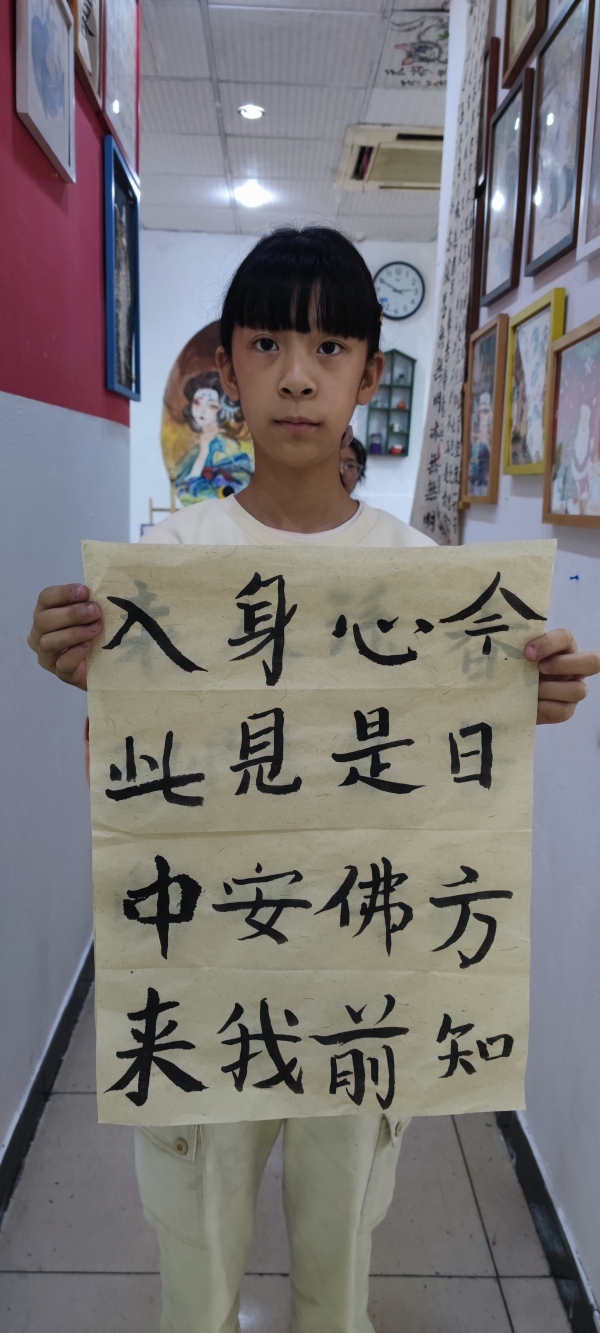 今日方知
心是佛前
身見安我
入此中来